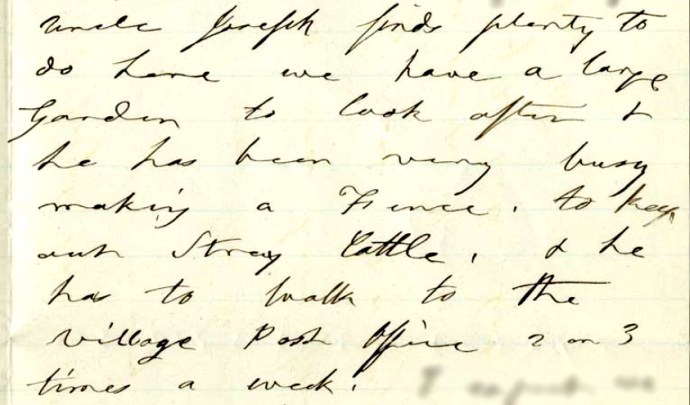 uncle Joseph finds plenty to
do here we have a large
Garden to look after &
he has been very busy
making a Fence. to keep
out Stray Cattle, & he
has to walk to the
village Post Office 2 or 3
times a week.